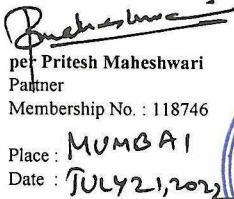 per Pritesh Maheshwari
Partner
Membership No. : 118746
Place : MUMBAI
Date : JULY 21, 2022